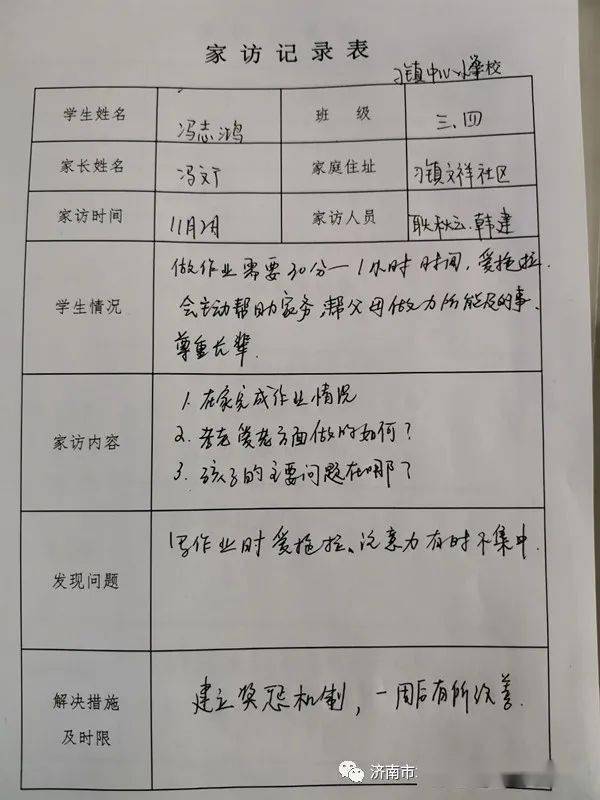 家访记录表
刁镇中心小学校
学生姓名 冯志鸿 班级 三.四
家长姓名 冯文广 家庭住址 刁镇文祥社区
家访时间 11月2日 家访人员 耿秋云.韩建
学生情况
做作业需要30分一1小时时间,爱拖拉.
会主动帮助家务,帮父母做力所能及的事.
尊重长辈.
家访内容
1. 在家完成作业情况
2. 孝老爱老方面做的如何?
3. 孩子的主要问题在哪?
发现问题
写作业时爱拖拉、注意力有时不集中.
解决措施
及时限
建立奖惩机制,一周后有所改善.
济南市